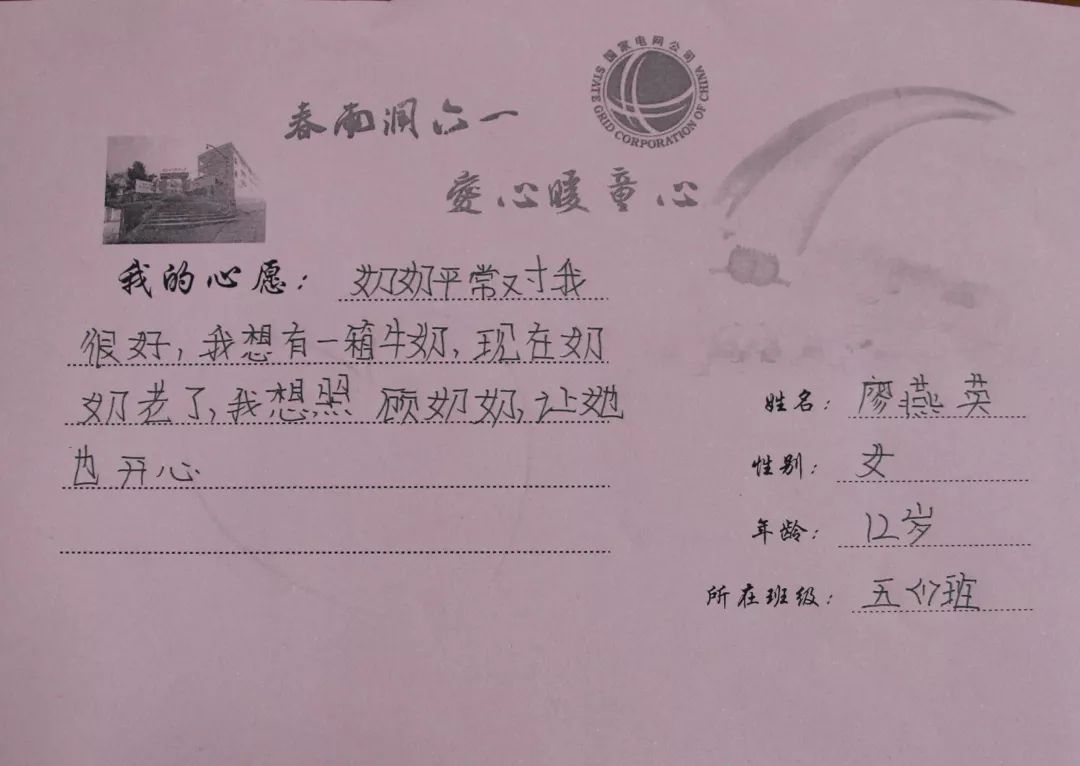 国家电网公司
STATE GRID CORPORATION OF CHINA
春雨润六一
爱心暖童心
我的心愿：奶奶平常对我
很好，我想有一箱牛奶，现在奶
奶老了，我想照顾奶奶，让她
也开心
姓名：廖燕英
性别：女
年龄：12岁
所在班级：五(1)班